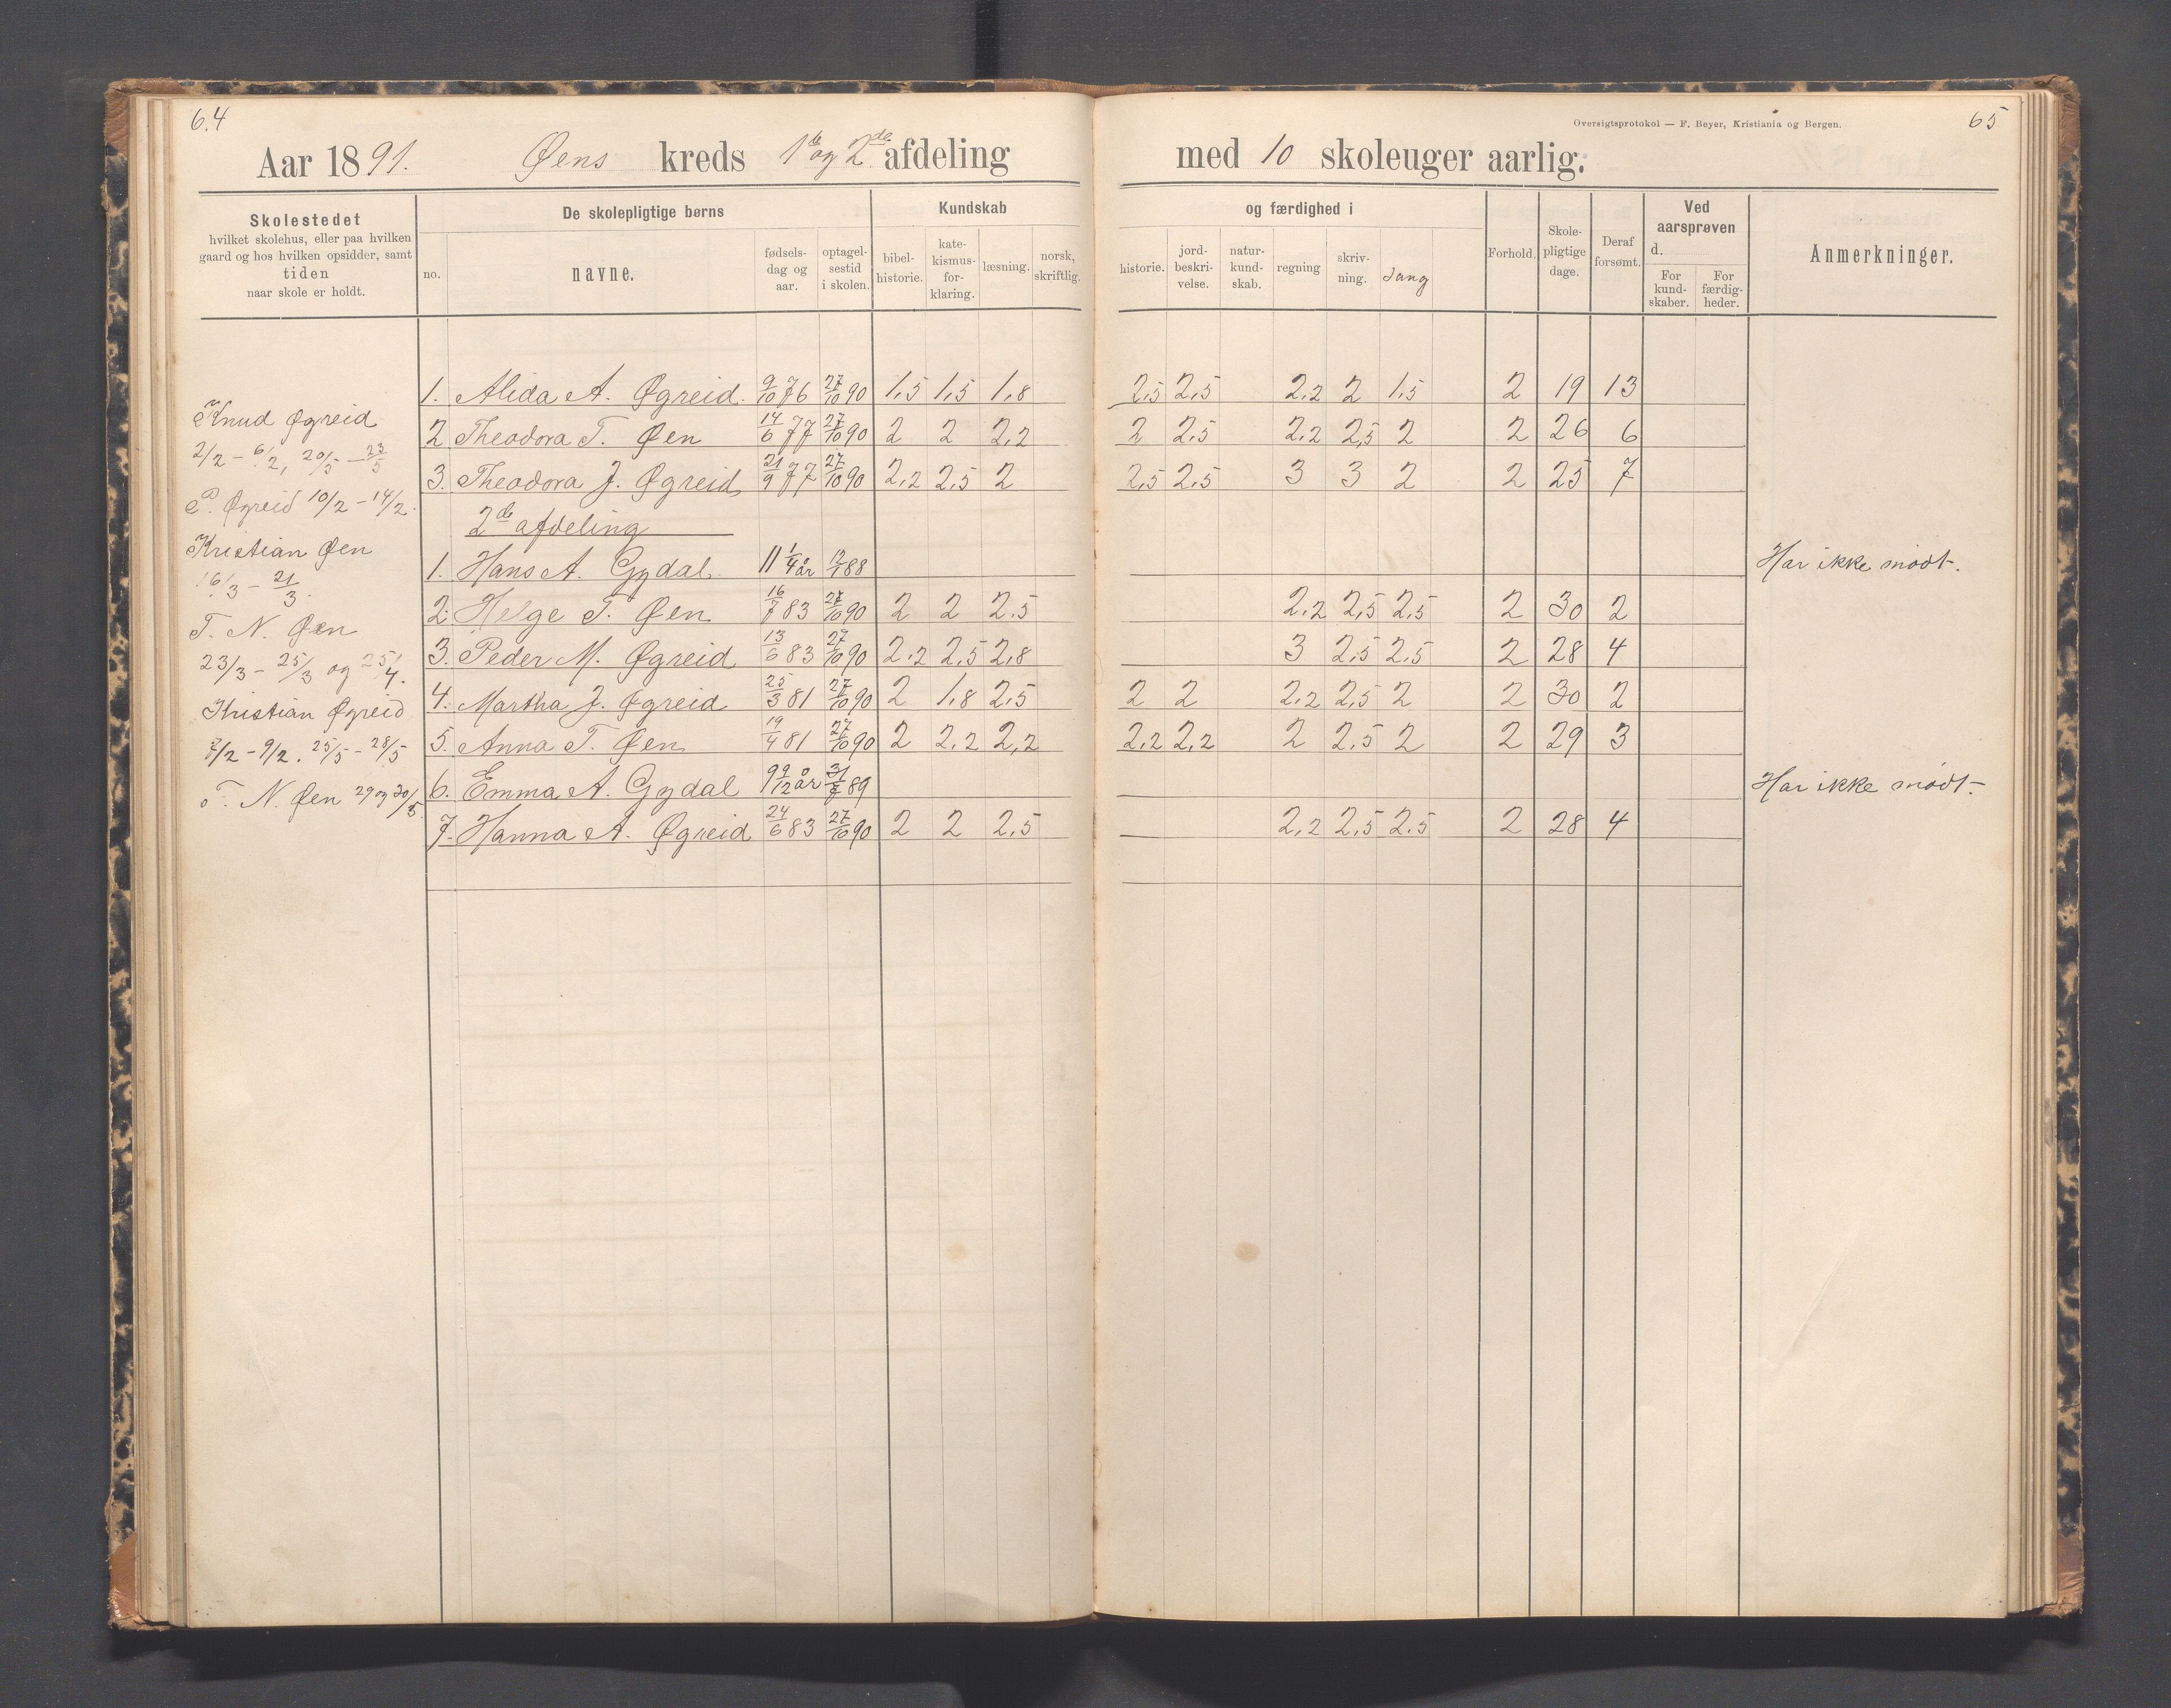 64
Oversigtsprotokol — F. Beyer, Kristiania og Bergen.
65
Aar 1891. Øens kreds 1ste og 2den afdeling med 10 skoleuger aarlig.
Skolestedet
hvilket skolehus, eller paa hvilken
gaard og hos hvilken opsidder, samt
tiden
naar skole er holdt.
De skolepligtige børns
no. navne. fødsels-dag og aar. optagel-sestid i skolen.
Kundskab og færdighed i
bibel-historie. kate-kismus-for-klaring. læsning. norsk, skriftlig. historie. jord-beskri-velse. natur-kund-skab. regning skriv-ning. Sang
Forhold. Skole-pligtige dage. Deraf forsømt.
Ved aarsprøven
d.
For kund-skaber. For færdig-heder.
Anmerkninger.
Knud Øgreid
2/2 – 6/2, 20/5 – 23/5
P. Øgreid 10/2 – 14/2.
Kristian Øen
16/3 – 21/3.
T. N. Øen
23/3 – 25/3 og 25/4.
Kristian Øgreid
7/2 – 9/2. 25/5 – 28/5
T. N. Øen 29 og 30/5.
1. Alida A. Øgreid. 9/10 76 27/10 90 1,5 1,5 1,8 2,5 2,5 2,2 2 1,5 2 19 13
2 Theodora T. Øen 14/6 77 27/10 90 2 2 2,2 2 2,5 2,2 2,5 2 2 26 6
3. Theodora J. Øgreid 21/9 77 27/10 90 2,2 2,5 2 2,5 2,5 3 3 2 2 25 7
2de afdeling
1. Hans A. Gydal. 11 1/4 år 88 Har ikke mødt.
2. Helge T. Øen 16/7 83 27/10 90 2 2 2.5 2,2 2,5 2,5 2 30 2
3. Peder M. Øgreid 13/6 83 27/10 90 2,2 2,5 2,8 3 2,5 2,5 2 28 4
4. Martha J. Øgreid 25/3 81 27/10 90 2 1,8 2,5 2 2 2,2 2,5 2 2 30 2
5. Anna T. Øen 19/4 81 27/10 90 2 2,2 2,2 2,2 2,2 2 2,5 2 2 29 3
6. Emma A. Gydal 9 9/12 år 89 Har ikke mødt.
7. Hanna A. Øgreid 24/6 83 27/10 90 2 2 2,5 2,2 2,5 2.5 2 28 4